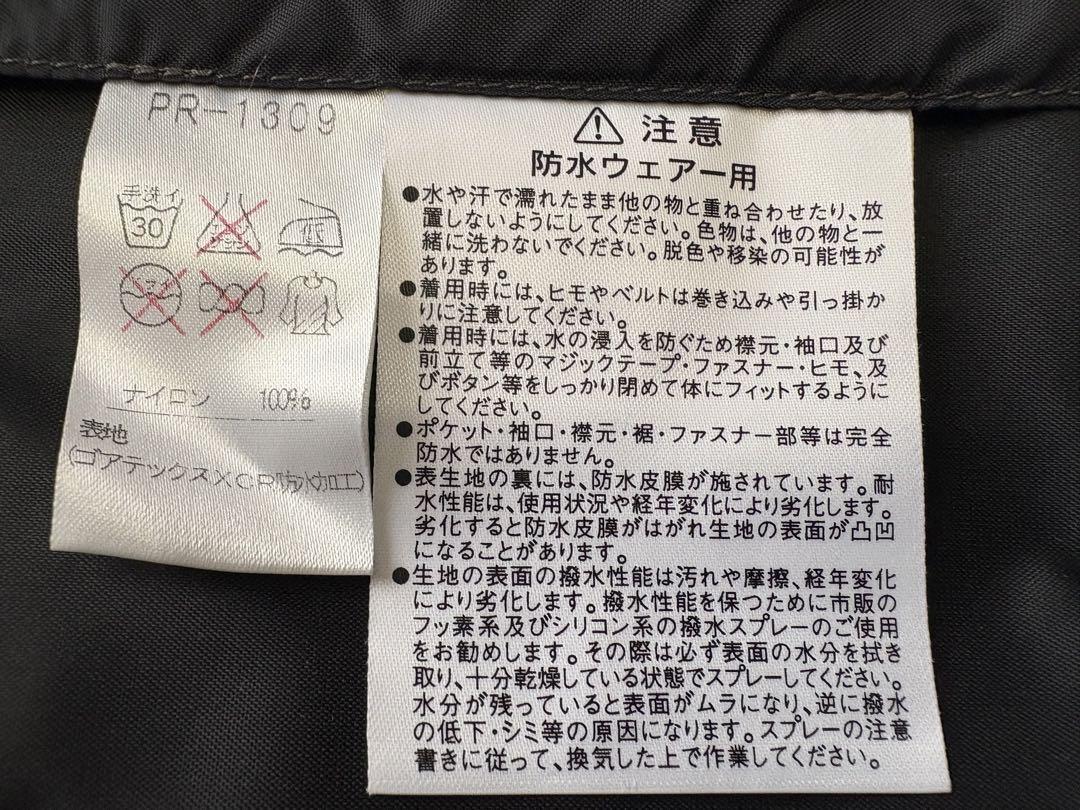 PR-1309
手洗イ
30
エンソ
サラシ
低
ドライ
ナイロン 100%
表地
(ゴアテックスXCR防水加工)
注意
防水ウェアー用
●水や汗で濡れたまま他の物と重ね合わせたり、放
置しないようにしてください。色物は、他の物と一
緒に洗わないでください。脱色や移染の可能性が
あります。
●着用時には、ヒモやベルトは巻き込みや引っ掛か
りに注意してください。
●着用時には、水の浸入を防ぐため襟元・袖口及び
前立て等のマジックテープ・ファスナー・ヒモ、及
びボタン等をしっかり閉めて体にフィットするように
してください。
●ポケット・袖口・襟元・裾・ファスナー部等は完全
防水ではありません。
●表生地の裏には、防水皮膜が施されています。耐
水性能は、使用状況や経年変化により劣化します。
劣化すると防水皮膜がはがれ生地の表面が凸凹
になることがあります。
●生地の表面の撥水性能は汚れや摩擦、経年変化
により劣化します。撥水性能を保つために市販の
フッ素系及びシリコン系の撥水スプレーのご使用
をお勧めします。その際は必ず表面の水分を拭き
取り、十分乾燥している状態でスプレーしてください。
水分が残っていると表面がムラになり、逆に撥水
の低下・シミ等の原因になります。スプレーの注意
書きに従って、換気した上で作業してください。